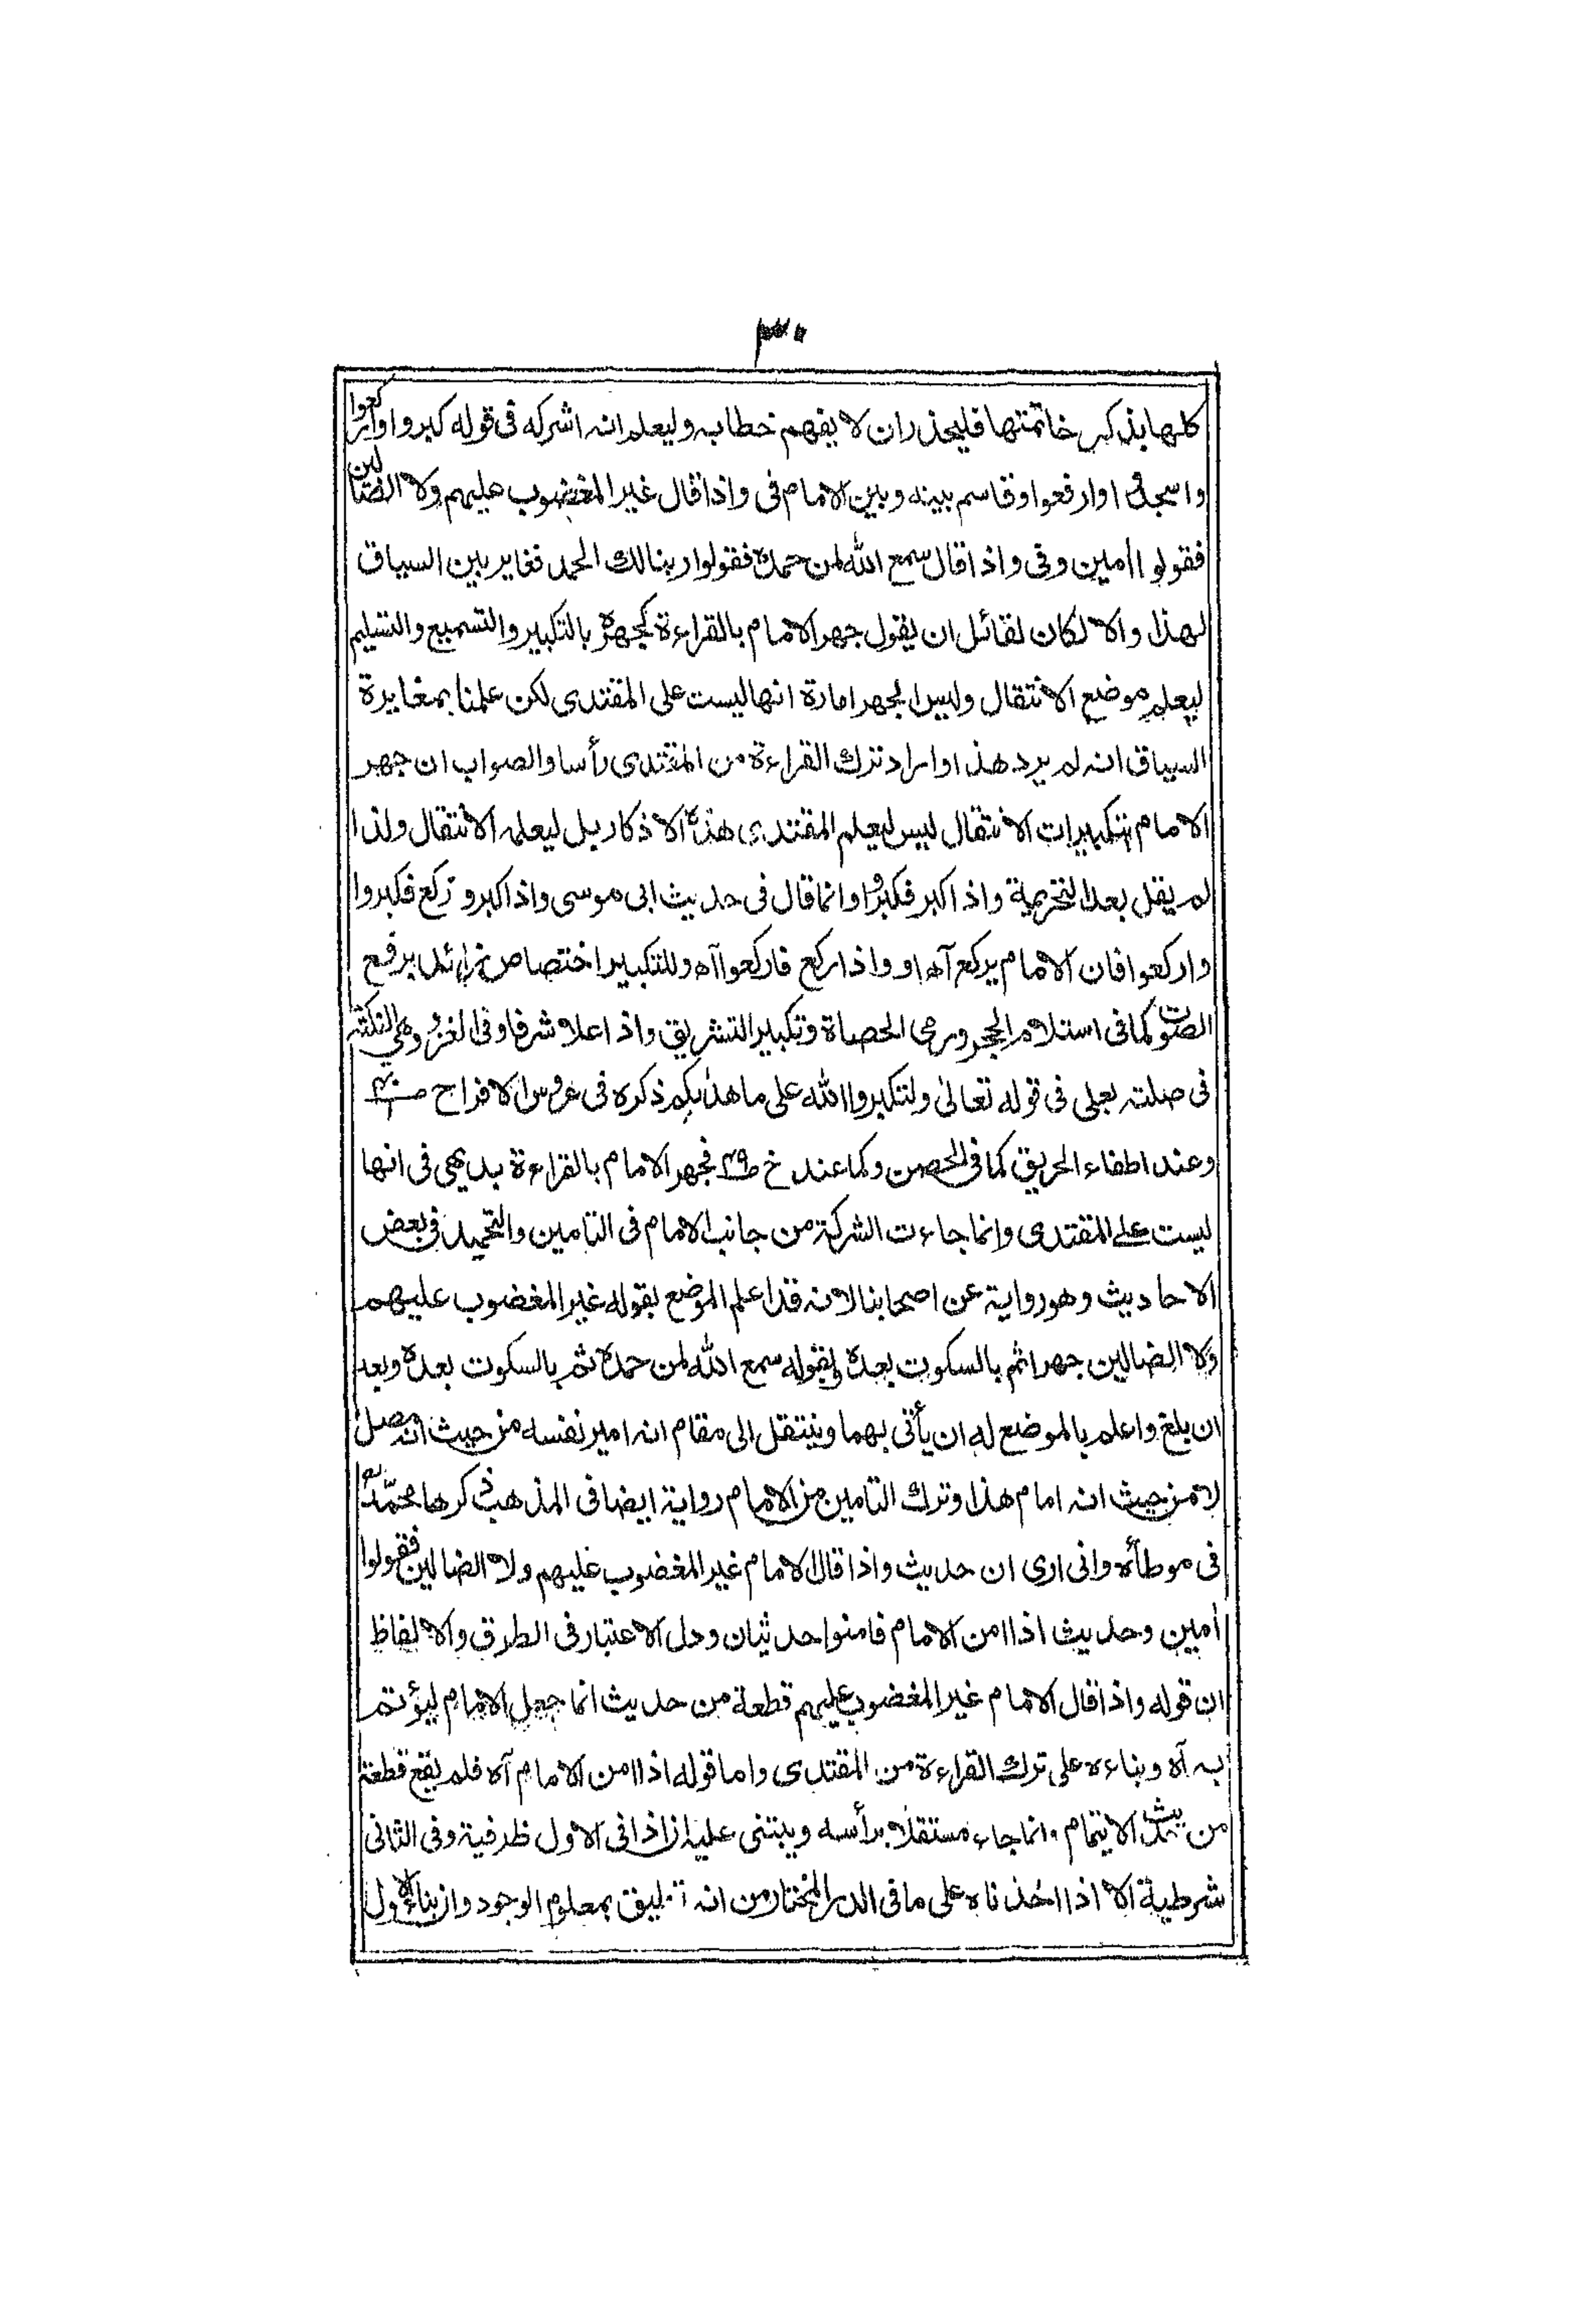 ٣٠
كلها بذكر خاتمتها فليحذر ان لا يفهم خطابه وليعلم انه اشركه فى قوله كبروا واركعوا
واسجدوا وارفعوا وقاسم بينه وبين الامام فى واذا قال غير المغضوب عليهم ولا الضالين
فقولوا اٰمين وفى واذا قال سمع الله لمن حمده فقولوا ربنا لك الحمد فغاير بين السياق
لهذا والا لكان لقائل ان يقول جهر الامام بالقراءة كجهره بالتكبير والتسميع والتسليم
ليعلم موضع الانتقال وليس الجهر امارة انها ليست على المقتدى لكن علمنا بمغايرة
السياق انه لم يرد هذا وا راد ترك القراءة من المقتدى رأسا والصواب ان جهر
الامام بتكبيرات الانتقال ليس ليعلم المقتدى هذه الاذكار بل ليعلم الانتقال ولذا
لم يقل بعد التحريمة واذا كبر فكبروا وانما قال فى حديث ابى موسى واذا كبر وركع فكبروا
واركعوا فان الامام يركع آه او واذا ركع فاركعوا آه وللتكبير اختصاص زائد برفع
الصوت كما فى استلام الحجر ورمى الحصاة وتكبير التشريق واذا علا شرفا وفى الغزو وهى النكتة
فى صلته بعلى فى قوله تعالى ولتكبروا الله على ما هداكم ذكره فى عروس الافراح
وعند اطفاء الحريق كما فى الحصن وكما عند خ فجهر الامام بالقراءة بديهى فى انها
ليست على المقتدى وانما جاءت الشركة من جانب الامام فى التامين والتحميد فى بعض
الاحاديث وهو رواية عن اصحابنا لانه قد اعلم الموضع بقوله غير المغضوب عليهم
ولا الضالين جهرا ثم بالسكوت بعده وبقوله سمع الله لمن حمده ثم بالسكوت بعده وبعد
ان بلغ واعلم بالموضع له ان يأتى بهما وينتقل الى مقام انه امير نفسه من حيث انه مصل
لا من حيث انه امام هذا وترك التامين من الامام رواية ايضا فى المذهب ذكرها محمد
فى موطأه وانى ارى ان حديث واذا قال الامام غير المغضوب عليهم ولا الضالين فقولوا
اٰمين وحديث اذا امن الامام فامنوا حديثان ودل الاعتبار فى الطرق والالفاظ
ان قوله واذا قال الامام غير المغضوب عليهم قطعة من حديث انما جعل الامام ليؤتم
به آه وبناءه على ترك القراءة من المقتدى واما قوله اذا امن الامام آه فلم يقع قطعة
من حديث الايتمام وانما جاء مستقلا برأسه ويبتنى عليه ان اذا فى الاول ظرفية وفى الثانى
شرطية الا اذا اخذناه على ما فى الدر المختار من انه تعليق بمعلوم الوجود وان بناء الاول